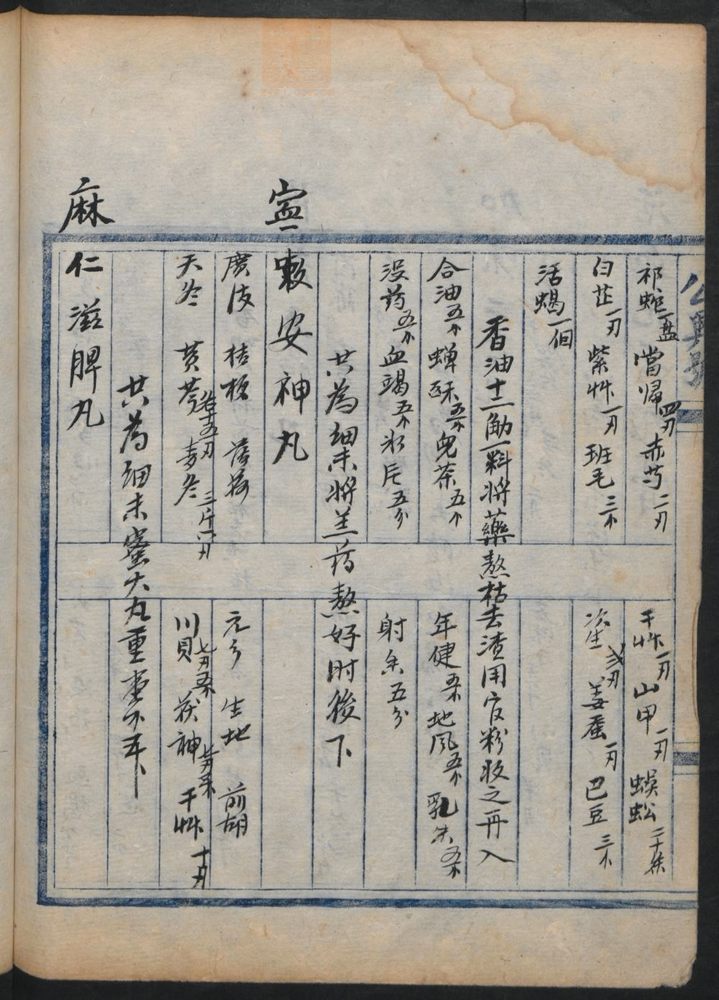 祁蛇一盘 當歸四刃 赤芍二刃
干艸一刃 山甲一刃 蜈蚣二十条
白芷一刃 紫艸一刃 班毛三个
姜蚕一刃 巴豆三个
活蝎一個
香油十二觔一料將藥熬枯去渣用官粉收之再入
合油五个 蟬酥五个 兒茶五个
年健五个 地风五个 乳香五个
没药五个 血竭五个 氷片五分
射香五分
共為细末將羔药熬好时後下
寧
嗽安神丸
廣皮 桔梗
元今 生地 前胡
天冬 黄芩各十五刃 麦冬三斤六刃
川貝七刃五个 茯神 干艸十刃
共為细末蜜大丸重壹个五卜
麻
仁滋脾丸